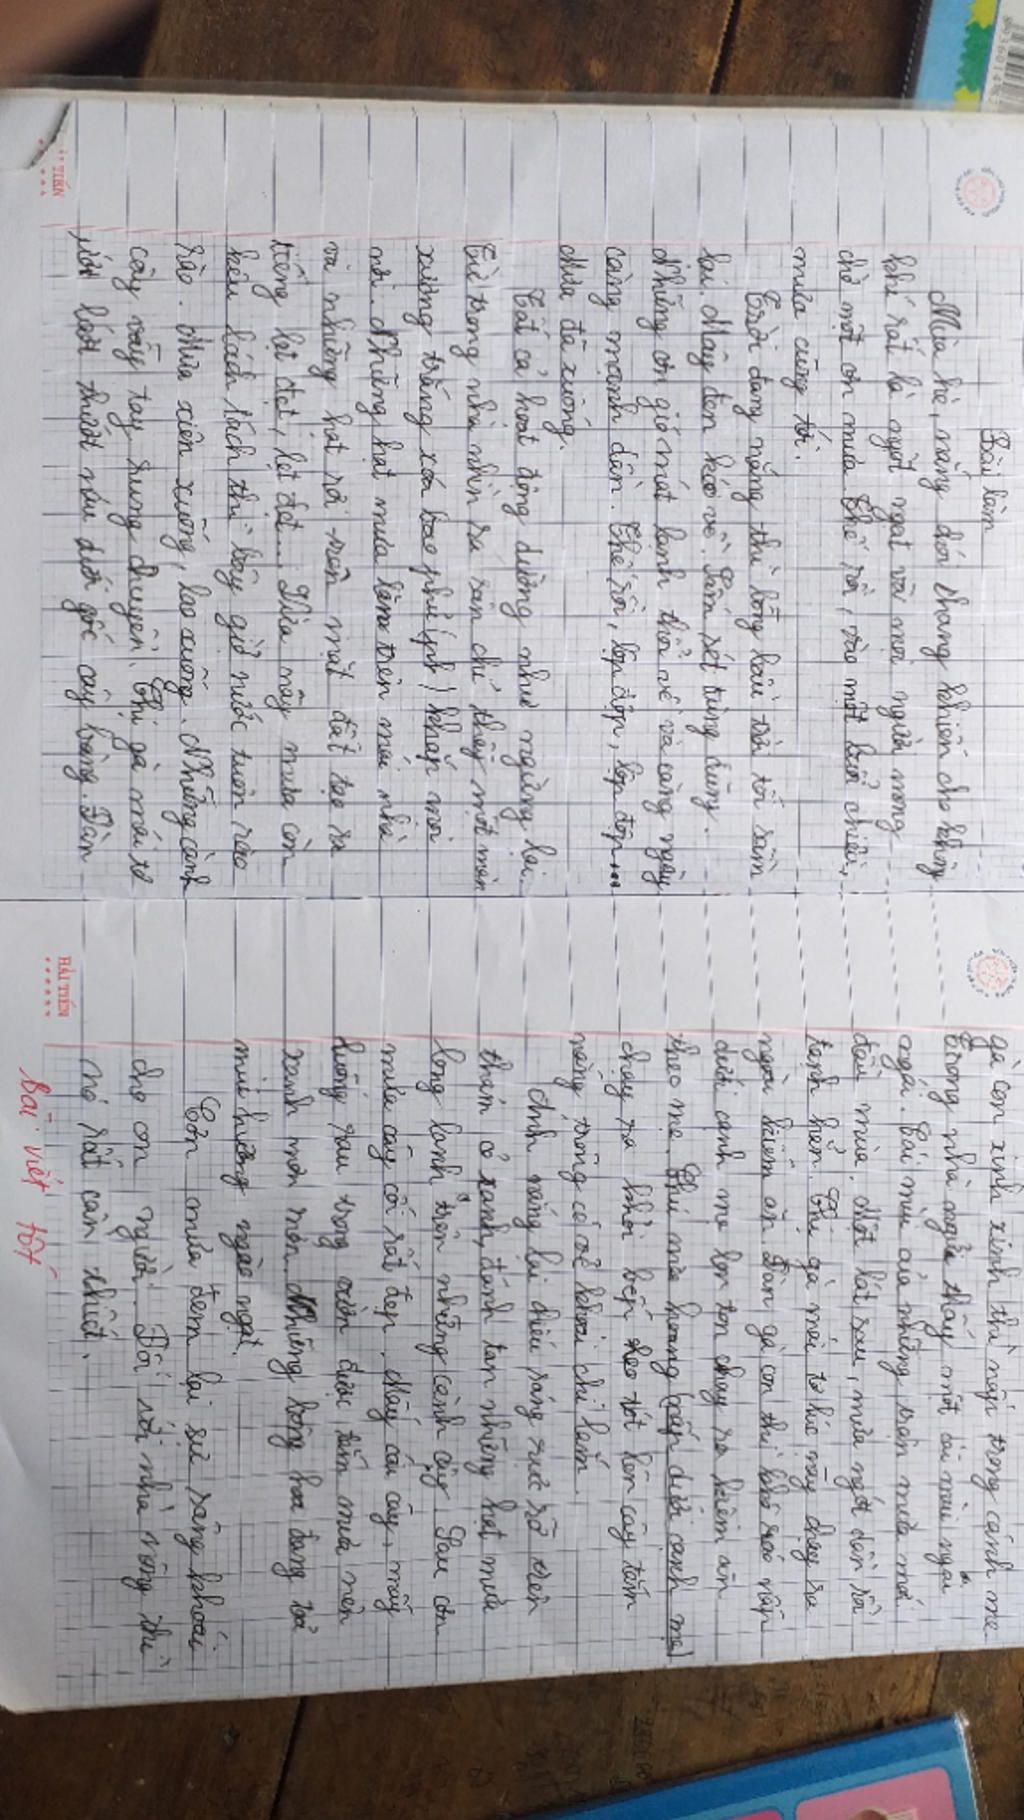 Bài làm
Mùa hè, nắng chói chang khiến cho không
khí rất là ngột ngạt với mọi người mong
chờ một cơn mưa. Thế rồi, vào một buổi chiều,
mưa cũng tới.
Trời đang nắng thì bỗng bầu trời tối sầm
lại. Mây đen kéo về. Sấm sét đùng đùng.
Những cơn gió mát lạnh thổi về và càng ngày
càng mạnh dần. Thế rồi, lộp độp, lộp độp...
Mưa đã xuống.
Tất cả hoạt động dường như ngừng lại.
Từ trong nhà nhìn ra sân chỉ thấy một màn
xương trắng xóa bao phủ khắp mọi
nơi. Những hạt mưa lăn trên mái nhà
và những hạt rơi trên mặt đất tạo ra
tiếng lẹt đẹt, lẹt đẹt... Nãy mưa còn
kêu lách tách thì bây giờ nước tuôn rào
rào. Mưa xiên xuống, lao xuống. Những cành
cây vẫy tay rung chuyển. Chị gà mái tơ
ướt lướt thướt núp dưới gốc cây bàng. Đàn
HẢI TIẾN
gà con xinh xinh thì nấp trong cánh mẹ.
Trong nhà ngửi thấy một cái mùi ngai
ngái. Cái mùi của những trận mưa mới
đầu mùa. Một lát sau, mưa ngớt dần rồi
tạnh hẳn. Chị gà mái tơ lúc này chạy ra
ngoài kiếm ăn. Đàn gà con thì khô ráo nấp
dưới cánh mẹ lon ton chạy ra kiếm ăn
theo mẹ. Chú mèo khoang (nấp dưới cánh mẹ)
chạy ra khỏi bếp leo tót lên cây tắm
nắng trông có vẻ khoái chí lắm.
Ánh nắng lại chiếu sáng rực rỡ trên
thảm cỏ xanh, đánh tan những hạt mưa
long lanh trên những cành cây. Sau cơn
mưa cây cối rất đẹp. Mấy cái cây, mấy
luống rau trong vườn được tắm mưa nên
xanh mơn mởn. Những bông hoa đang tỏa
mùi hương ngào ngạt.
Cơn mưa đem lại sự sảng khoái
cho con người. Đối với nhà nông thì
nó rất cần thiết.
HẢI TIẾN
Bài viết tốt